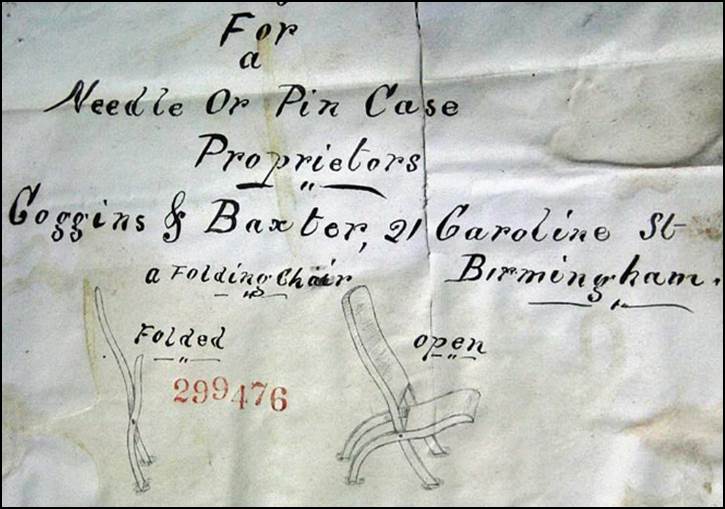 For
a
Needle Or Pin Case
Proprietors
Coggins & Baxter, 21 Caroline St
Birmingham.
a Folding Chair
Folded
open
299476